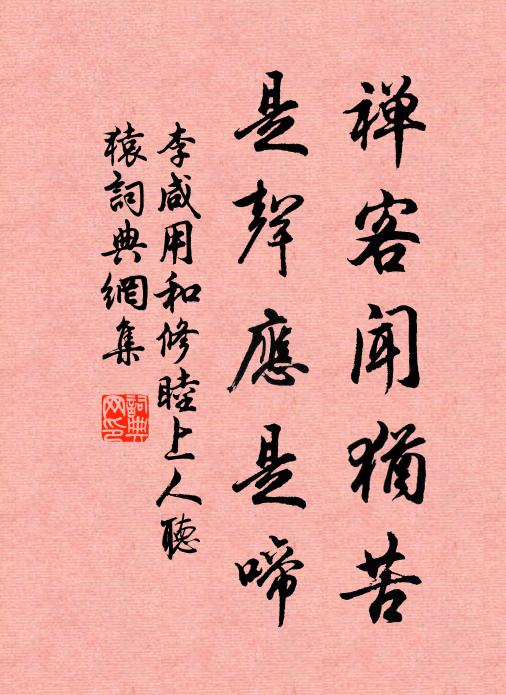 禅客闻犹苦
是聲應是啼
李咸用和修睦上人聽
猿詞典網集
詞典
网印